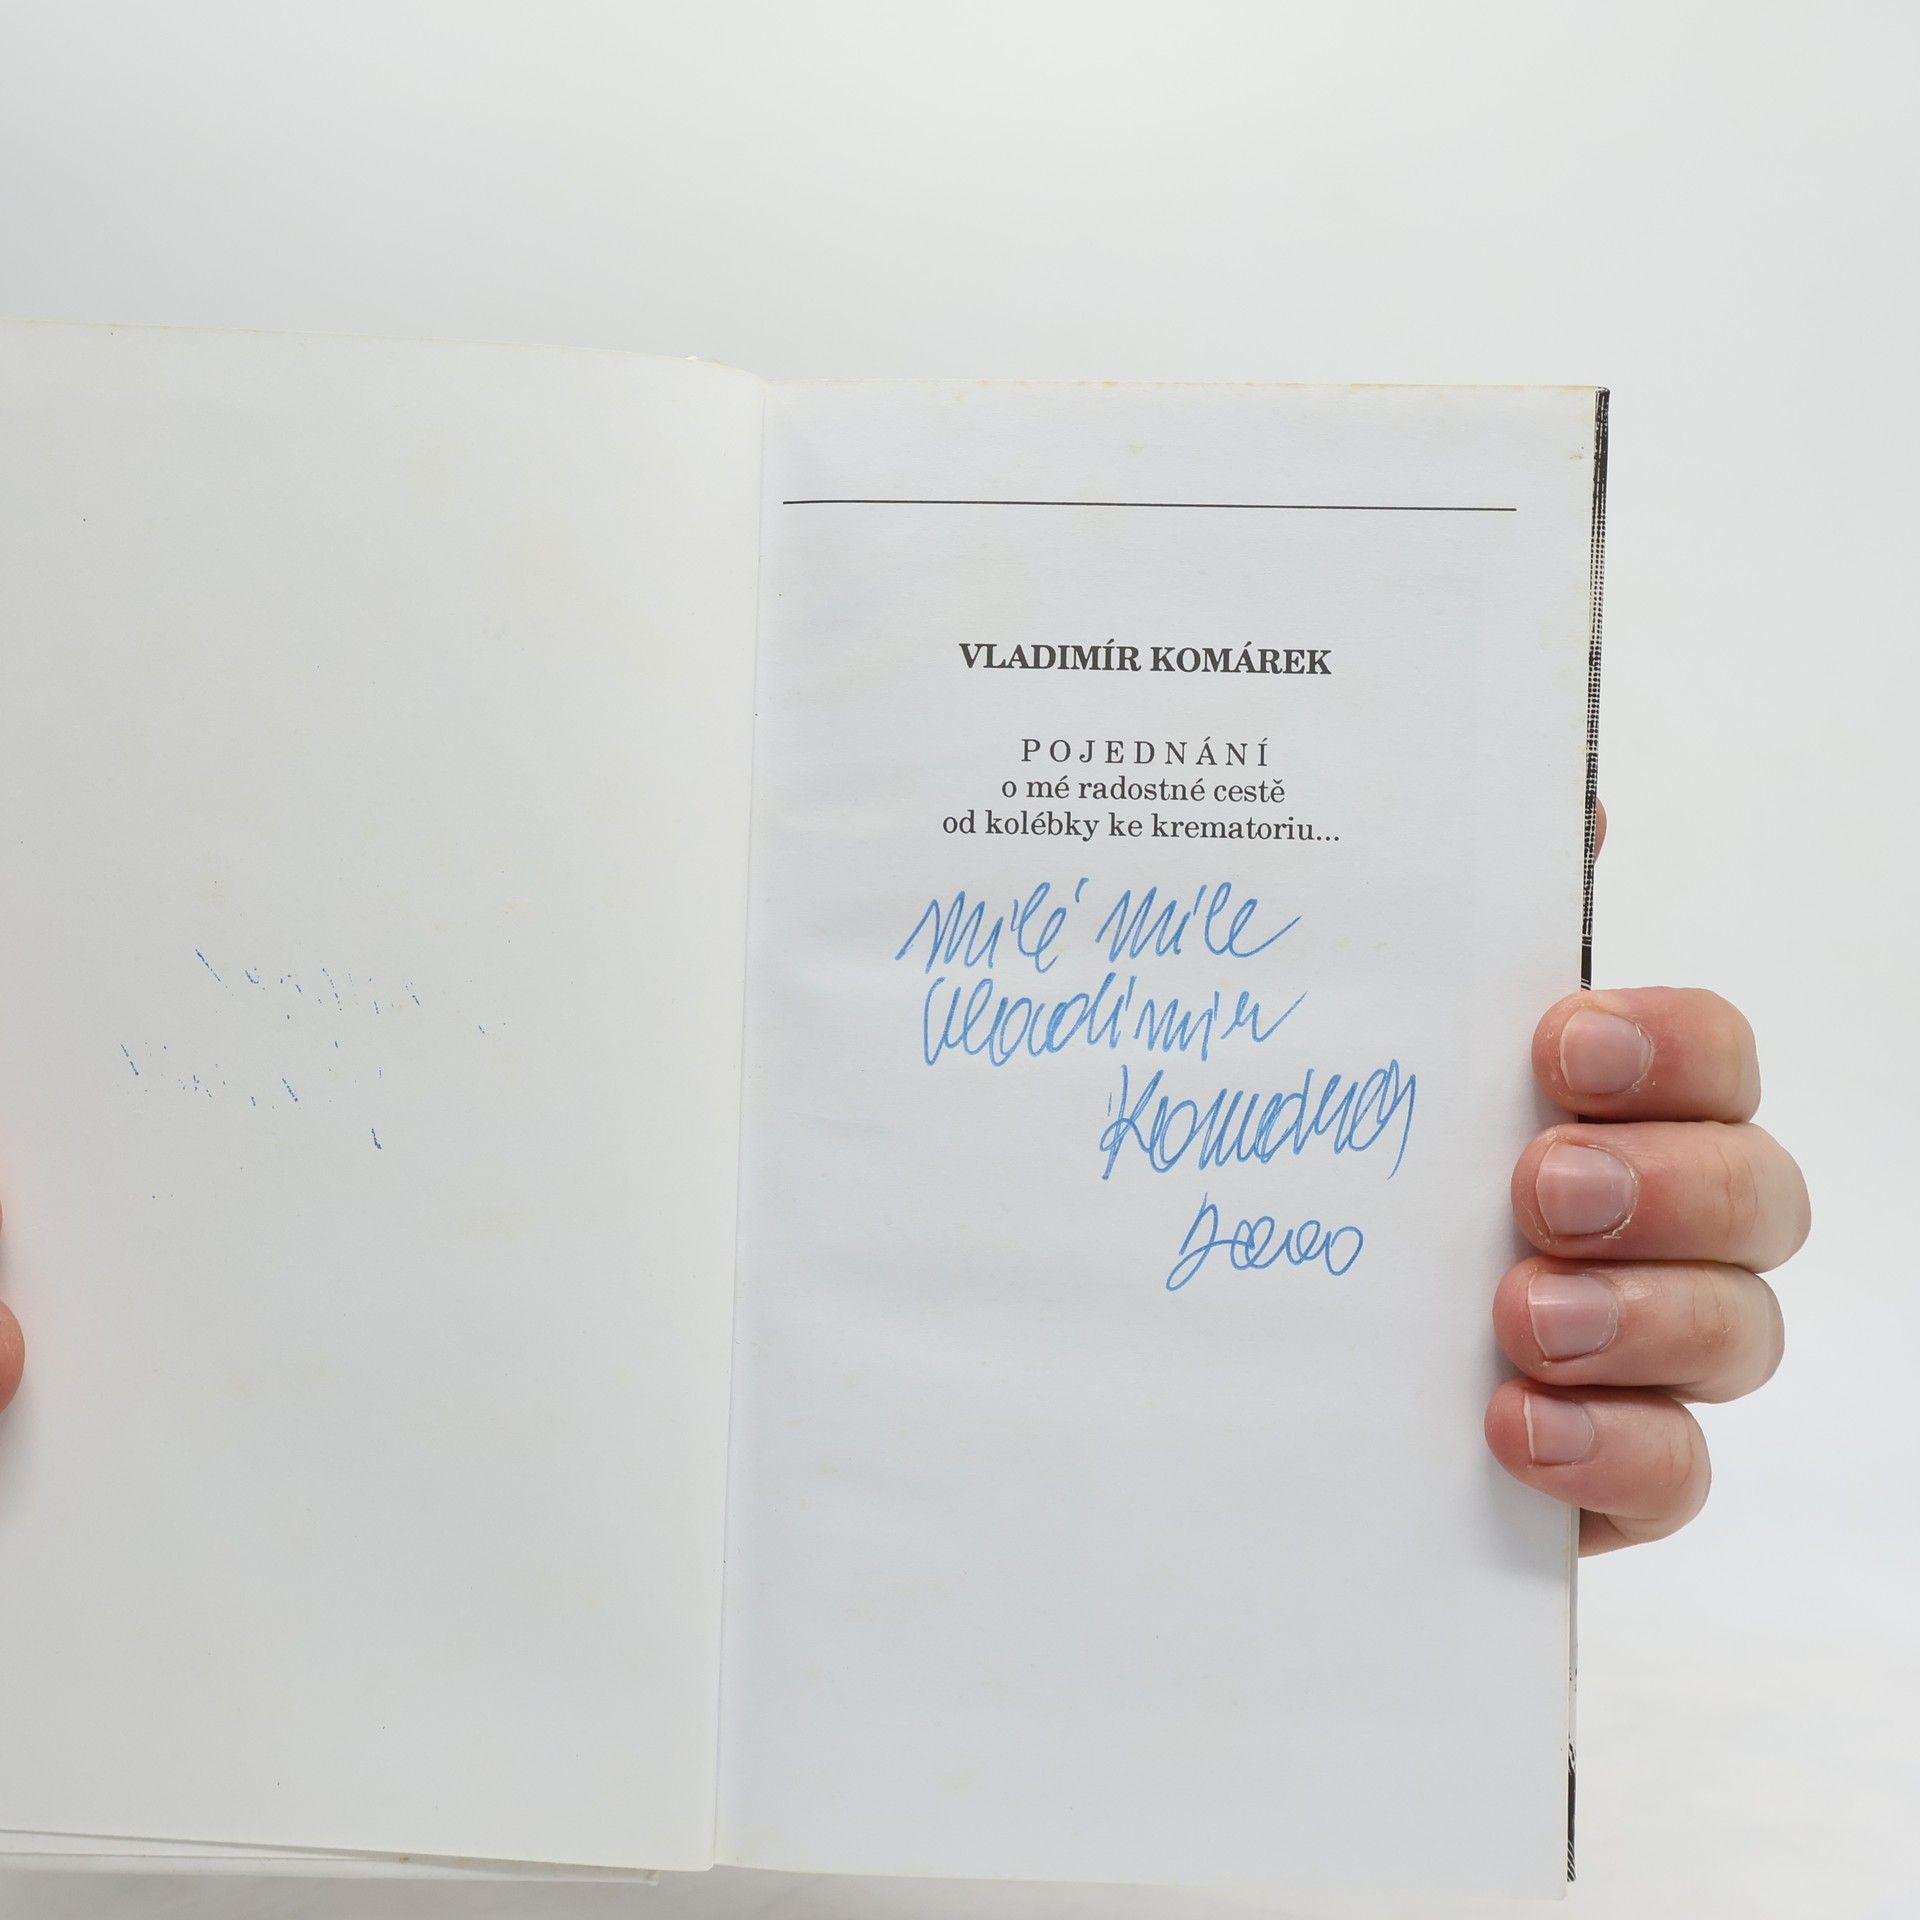 VLADIMÍR KOMÁREK
POJEDNÁNÍ
o mé radostné cestě
od kolébky ke krematoriu...
milé Mile
Vladimír
Komárek